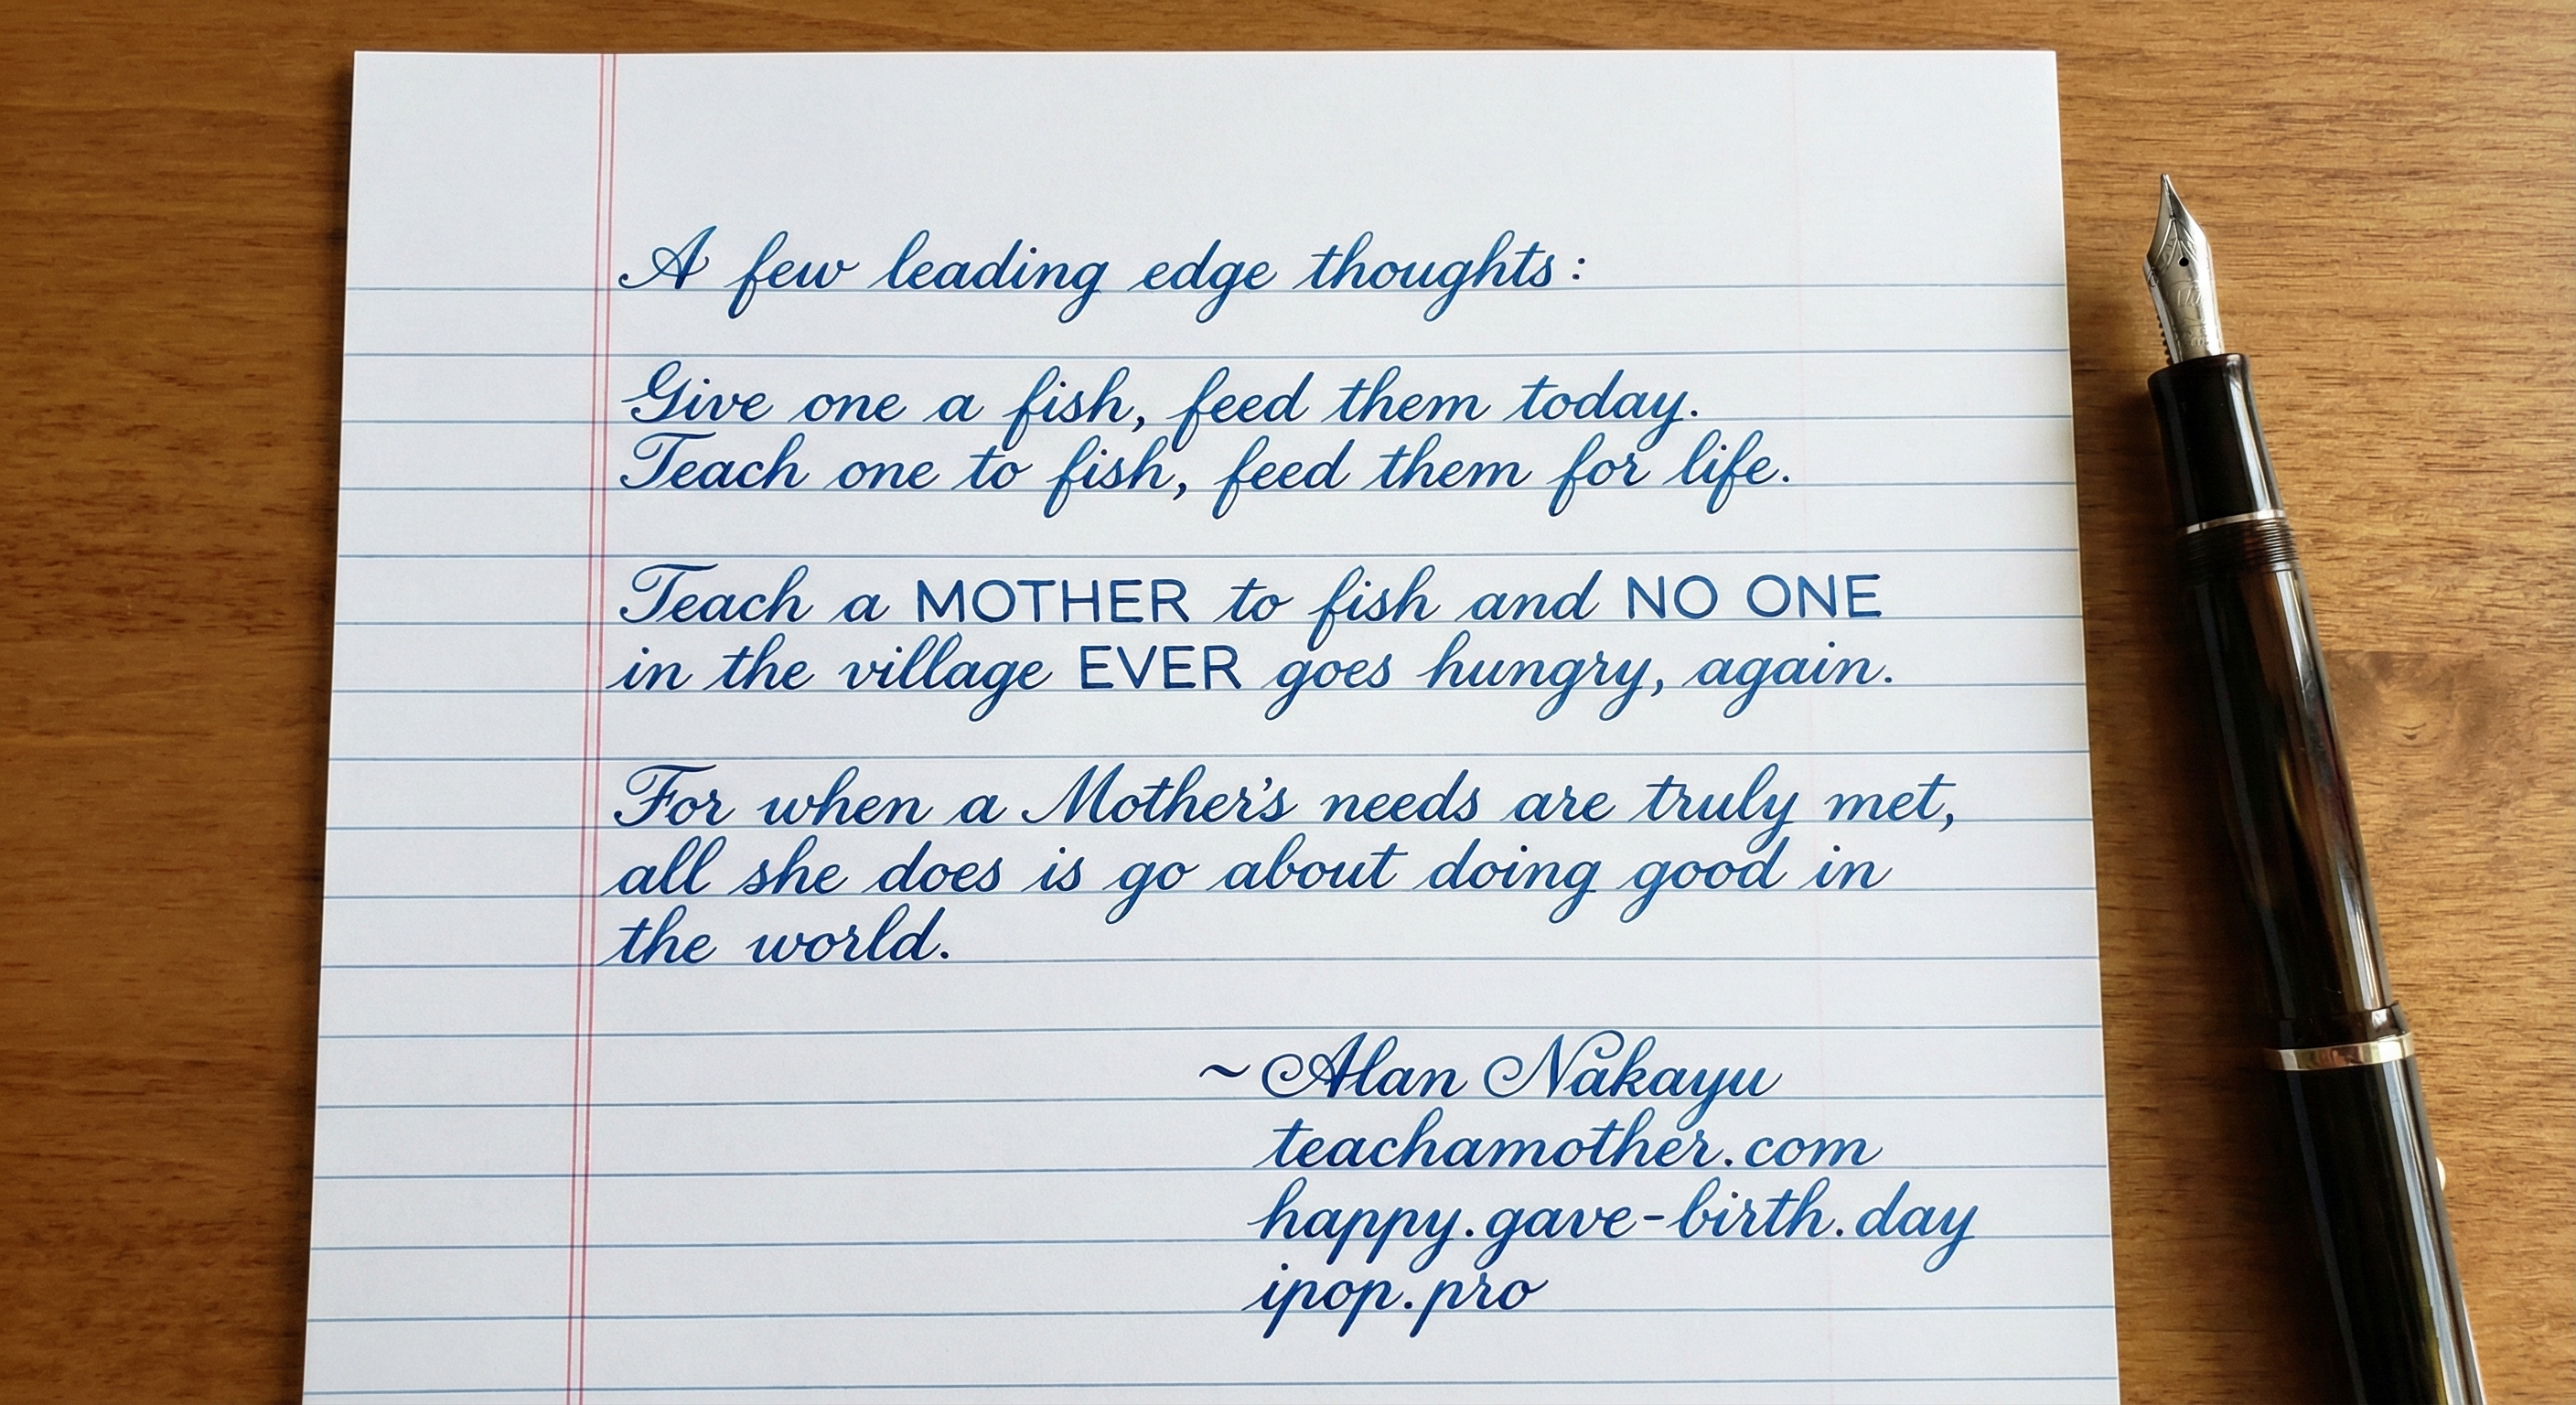 A few leading edge thoughts:
Give one a fish, feed them today.
Teach one to fish, feed them for life.
Teach a MOTHER to fish and NO ONE
in the village EVER goes hungry, again.
For when a Mother's needs are truly met,
all she does is go about doing good in
the world.
~Alan Nakayu
teachamother.com
happy.gave-birth.day
ipop.pro